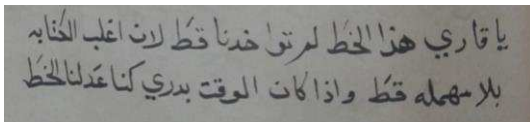 يا قاري هذا الخط لم توا خدنا قط لان اغلب الكتابه
بلا مهمله قط واذا كان الوقت بدري كنا عدلنا الخط